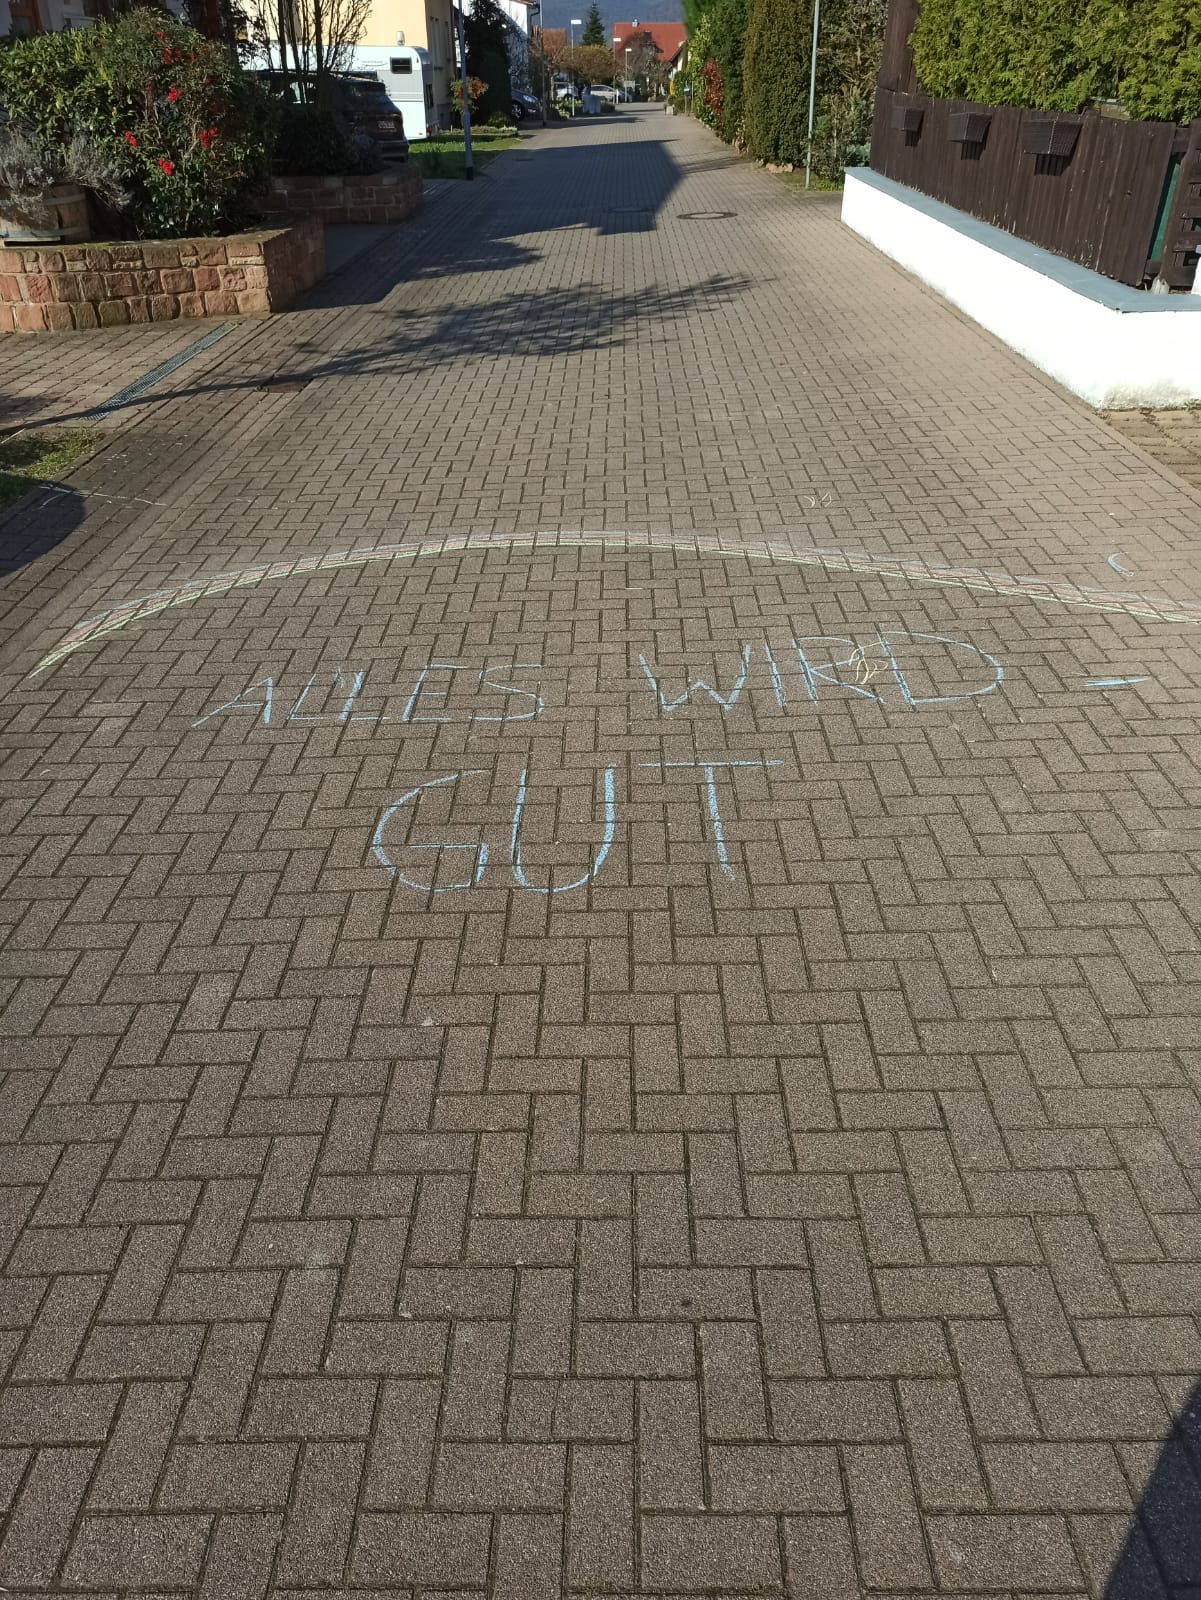 ALLES WIRD -
GUT